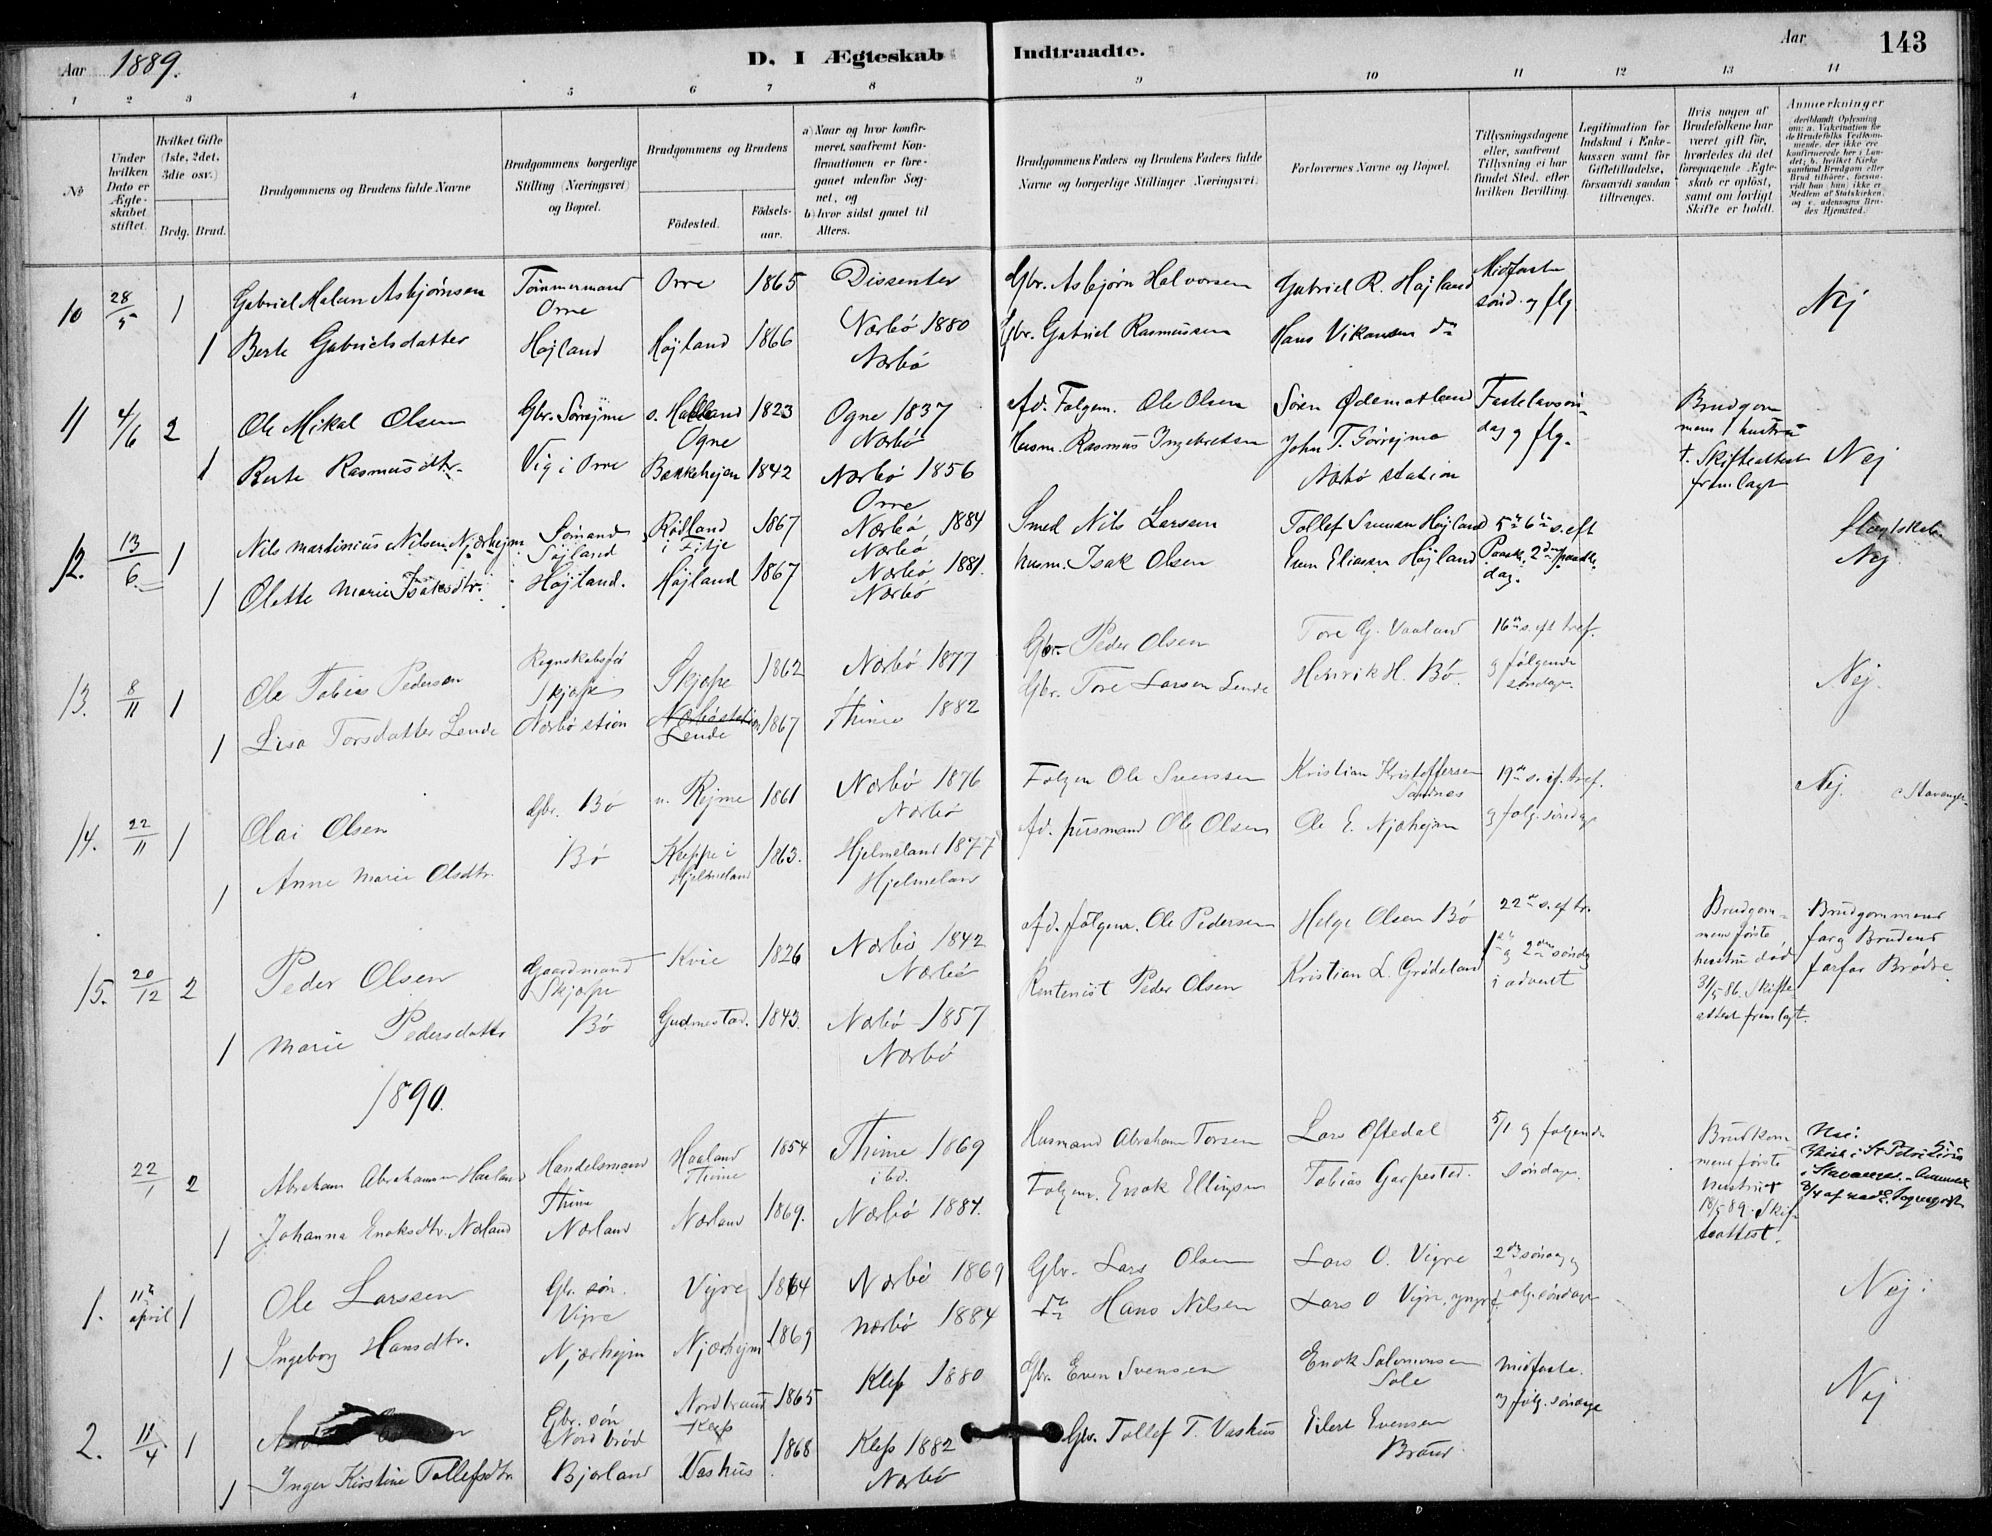 Aar 1889.
D. I Ægteskab Indtraadte.
Aar 143
1 2 3 4 5 6 7 8 9 10 11 12 13 14
No
Under hvilken Dato er Ægteskabet stiftet.
Hvilket Gifte (1ste, 2det, 3die osv.)
Brdg. Brud.
Brudgommens og Brudens fulde Navne
Brudgommens borgerlige Stilling (Næringsvei) og Bopæl.
Brudgommens og Brudens
Födested.
Födsels-aar.
a) Naar og hvor konfirmeret, saafremt Konfirmationen er foregaaet udenfor Sognet, og
b) hvor sidst gaaet til Alters.
Brudgommens Faders og Brudens Faders fulde Navne og borgerlige Stillinger (Næringsvei)
Forlovernes Navne og Bopæl.
Tillysningsdagene eller, saafremt Tillysning ei har fundet Sted, efter hvilken Bevilling.
Legitimation for Indskud i Enkekassen samt for Giftetilladelse, forsaavidt saadan tiltrænges.
Hvis nogen af Brudefolkene har været gift för, hvorledes da det foregaaende Ægteskab er oplöst, samt om lovligt Skifte er holdt.
Anmærkninger
10 28/5 1 Gabriel Malun Asbjørnsen Tømmermand Orre Orre 1865 Dissenter Gbr. Asbjørn Halvorsen Gabriel R. Højland Midfaste sønd. og flg Nej
1 Berte Gabrielsdatter Højland Højland 1866 Nærbø 1880 Nærbø Gbr. Gabriel Rasmussen Hans Vikansen do
11 4/6 2 Ole Mikal Olsen Gbr. Sørrejme s. Haaland Ogne 1823 Ogne 1837 Nærbø Afd. Folgem. Ole Olsen Søren Ødemotland Fastelavnsøndag og flg. Brudgommens 1 hustru † Skifteattest fremlagt Nej
1 Berte Rasmusdtr. Vig i Orre Bakkehejen 1842 Nærbø 1856 Orre Husm. Rasmus Ingebretsen John T. Sørrejme Nærbø station
12. 13/6 1 Nils Martinius Nilsen Njærhejm Sømand Søjland Rødland i Fitje 1867 Nærbø 1884 Nærbø Smed Nils Larssen Tollef Svensen Højland Nej
1 Olette Marie Isaksdtr. Højland. Højland 1867 Nærbø 1881. Nærbø Husm. Isak Olsen Even Eliassen Højland
13. 8/11 1 Ole Tobias Pedersen Skjæpe Skjæpe 1862 Nærbø 1877 Gbr. Peder Olsen Tore G. Vaaland 16de s. eft tref. og følgende søndage. Nej.
1 Lisa Torsdatter Lende Nærbø stion Nærbøstation Lende 1867 Thime 1882 Gbr. Tore Larsen Lende Henrik H. Bø.
14. 22/11 1 Olai Olsen Gbr. Bø n. Rejme 1861 Nærbø 1876 Nærbø Folgem Ole Svenssen Kristian Kristoffersen Sandnes 19de s. ef. tref. og følg. søndage Nej. c Stavanger
1 Anne Marie Olsdtr. Bø Kleppe i Hjelmeland 1863. Hjelmeland 1877 Hjelmeland Afd. husmand Ole Olsen Ole E. Njæhejm
15. 20/12 2 Peder Olsen Gaardmand Skjæpe Kvie 1826 Nærbø 1842 Nærbø Afd. følgem. Ole Pedersen Helge Olsen Bø 22de s. ef tr. 1ste og 2den søndag i advent Brudgommens første hustru død 3/5 86. Skifteattest fremlagt. Brudgommens far og Brudens farfar Brødre
1 Marie Pedersdatter Bø Gudmestad. 1843. Nærbø 1857 Nærbø Rentenist Peder Olsen Kristian L. Grødeland
1890.
22/1 2 Abraham Abrahamsen Haaland Handelsmand Thime Haaland Thime 1854 Thime 1869 ibd. Husmand Abraham Torsen Lars Oftedal 5/1 og følgende søndage. Brudgommens første hustru † 18/5 89. Skifteattest.
1 Johanna Enoksdtr. Nærland Nærland Nærland 1869. Nærbø 1884. Folgem. Enok Ellingsen Tobias Garpestad.
1. 11te april 1 Ole Larssen Gbr. søn. Vigre Vigre 1864 Nærbø 1869 Gbr. Lars Olsen Lars O. Vigre 2den søndag og følg. søndage Nej.
1 Ingeborg Hansdtr. Njærhejm Njærhejm 1869 Nærbø 1884 do Hans Nilsen Lars O Vigre, yngre
2. 11/4 1 Gbr. søn Nordbrød Nordbraut Klep 1865 Klep 1880 Gbr. Even Svensen Enok Salomonsen Sole Midfaste og følg. søndage Nej
1 Inger Kirstine Tollefsdtr Bjorland Vashus 1868 Klep 1882 Nærbø Gbr. Tollef T. Vashus Eilert Evensen Braud